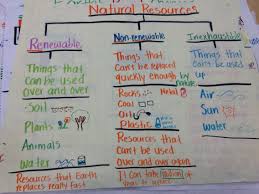 Natural Resources
Renewable
Things that
can be used
over and over
Soil
Plants
Animals
water
Resources that Earth
replaces really fast
Non-renewable
Things that
can't be replaced
quickly enough by
nature
Rocks Metal
Coal
Oil
Plastic
Resources that
can't be used
over and over again
It can take
of years to replace
Inexhaustible
Things that
can't be used
up
Air
Sun
water